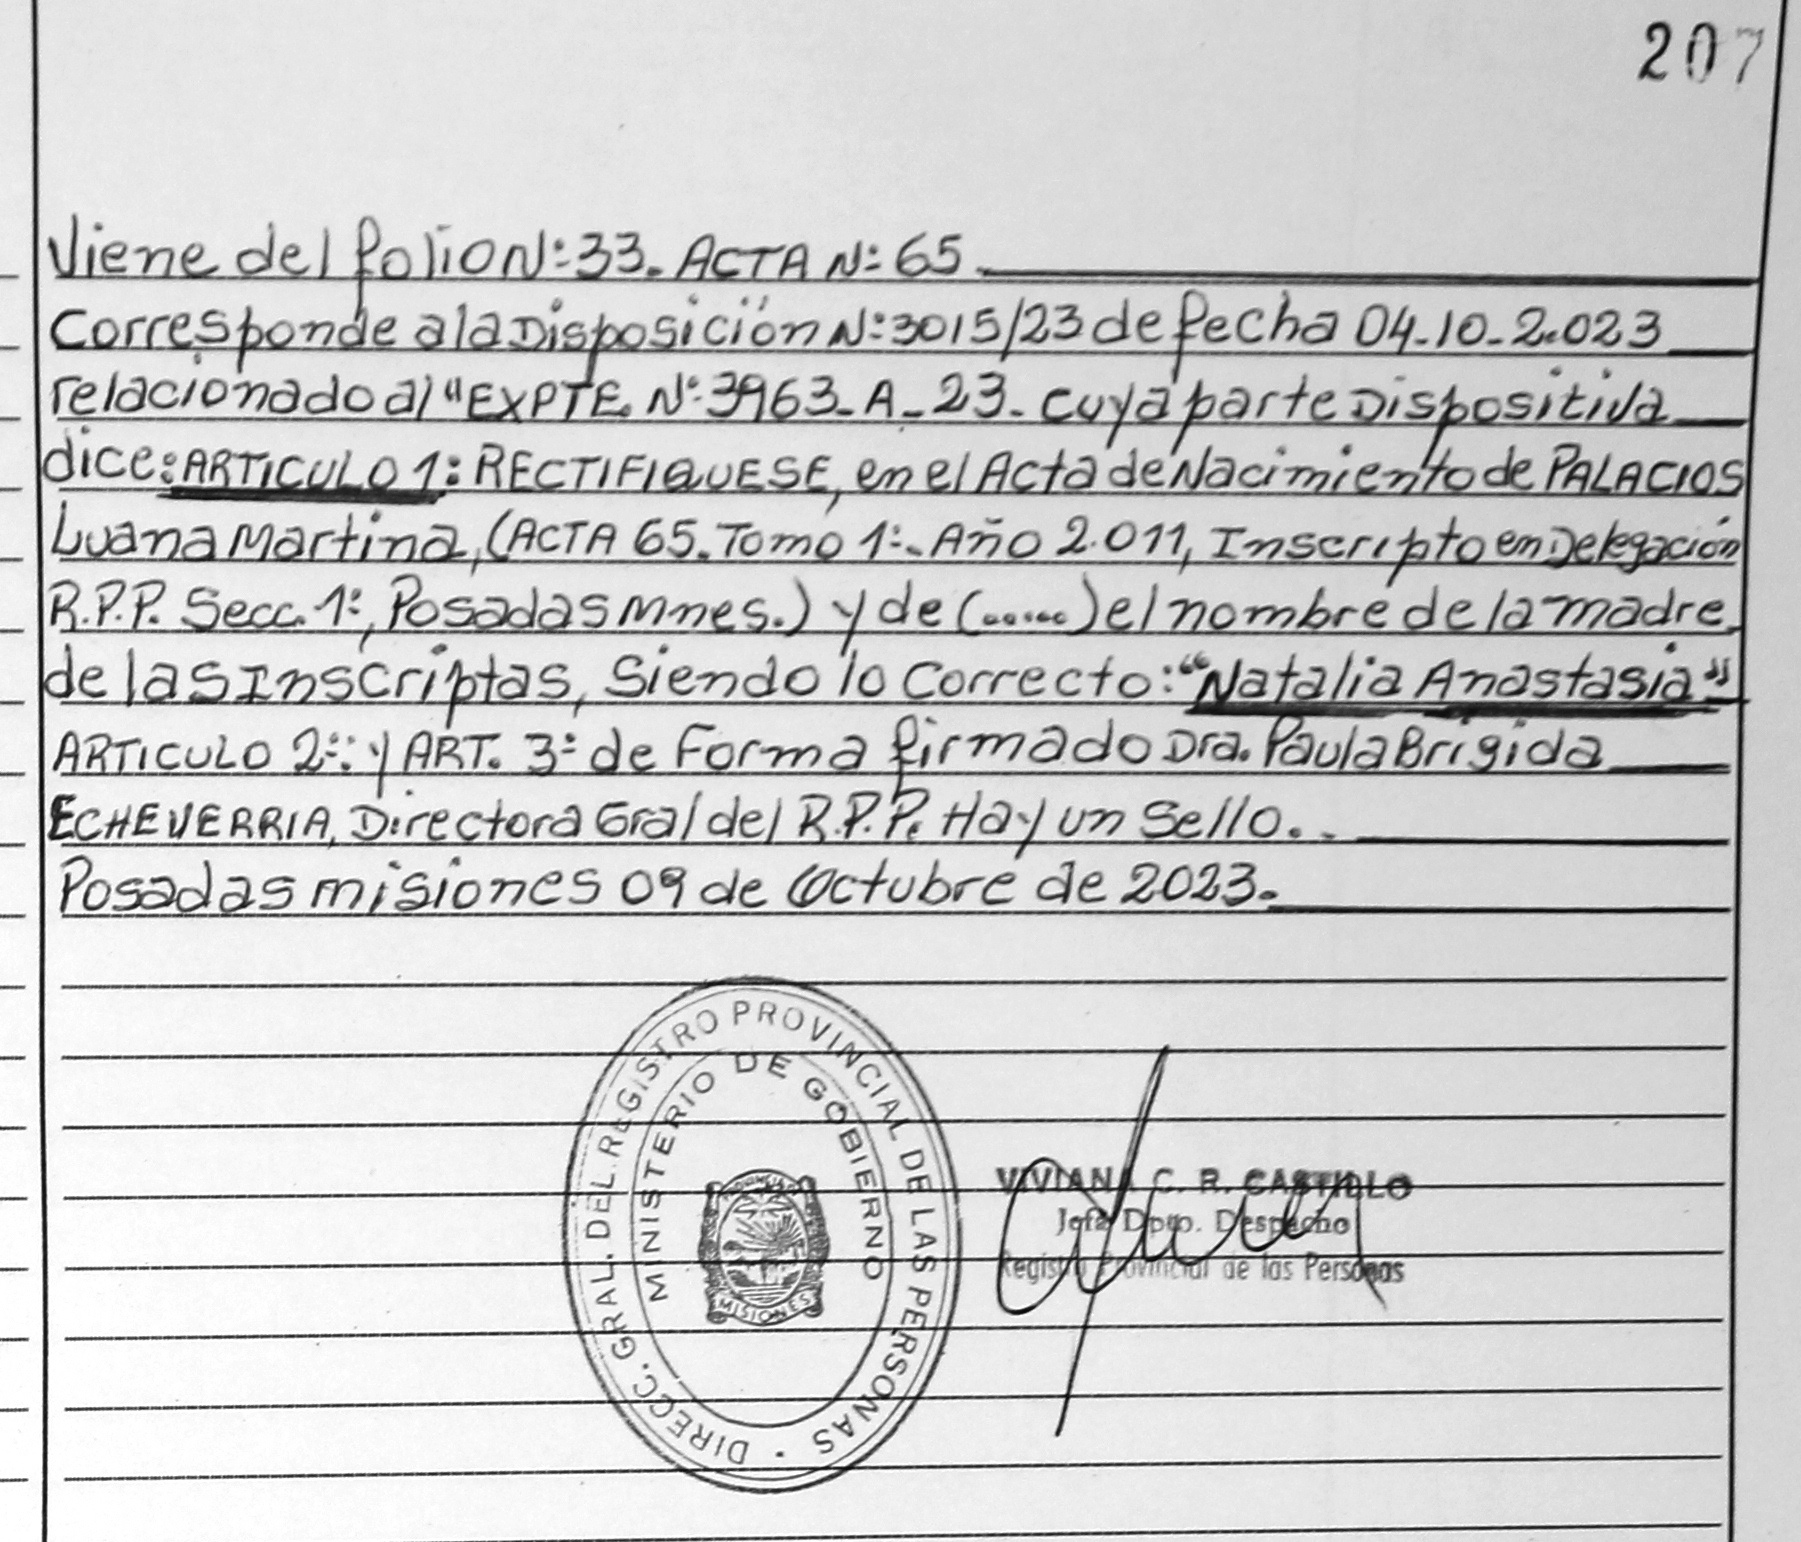 207
Viene del folio Nº: 33. ACTA Nº: 65.
Corresponde a la Disposición Nº: 3015/23 de fecha 04-10-2.023
relacionado al "EXPTE. Nº: 3963-A-23. cuya parte Dispositiva
dice: ARTICULO 1: RECTIFIQUESE, en el Acta de Nacimiento de PALACIOS
Luana Martina, (ACTA 65. Tomo 1º. Año 2.011, Inscripto en Delegación
R.P.P. Secc. 1º, Posadas Mnes.) y de (......) el nombre de la madre
de las Inscriptas, Siendo lo Correcto: "Natalia Anastasia"
ARTICULO 2º: y ART. 3º de Forma firmado Dra. Paula Brigida
ECHEVERRIA, Directora Gral del R.P.P. Hay un Sello..
Posadas misiones 09 de Octubre de 2023.
DIRECC. GRAL. DEL REGISTRO PROVINCIAL DE LAS PERSONAS
MINISTERIO DE GOBIERNO
MISIONES
VIVIANA C. R. CASTILLO
Jefa Dpto. Despacho
Registro Provincial de las Personas